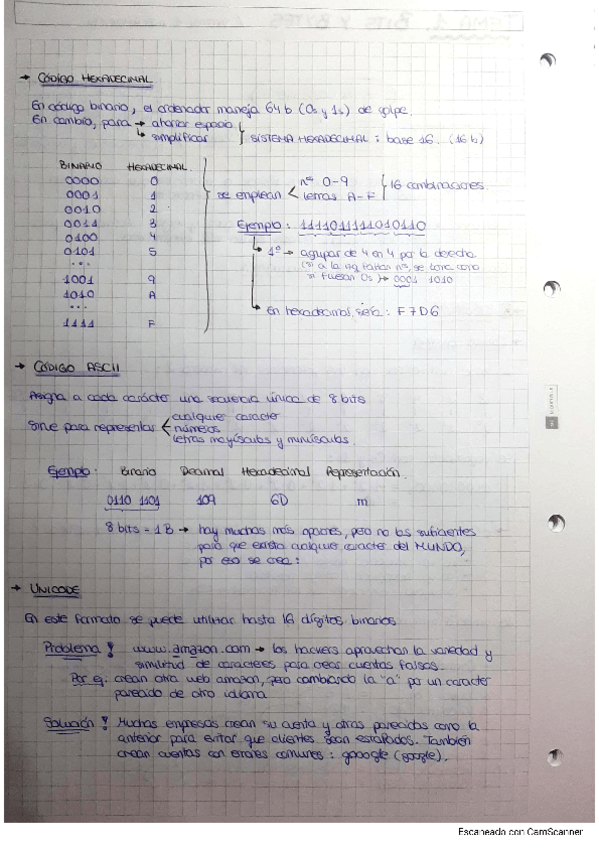 → CÓDIGO HEXADECIMAL
En código binario, el ordenador maneja 64 b (0s y 1s) de golpe.
En cambio, para → ahorrar espacio
↳ simplificar } SISTEMA HEXADECIMAL : base 16. (16 b)
BINARIO HEXADECIMAL
0000 0
0001 1
0010 2
0011 3
0100 4
0101 5
...
1001 9
1010 A
...
1111 F
se emplean < nºs 0-9
letras A-F } 16 combinaciones.
Ejemplo : 1111011111010110
↳ 1º → agrupar de 4 en 4 por la derecha
(si a la izq faltan nºs, se toma como
si fueran 0s) → 0001 1010
↳ En hexadecimal, sería : F7D6
→ CÓDIGO ASCII
Asigna a cada carácter una secuencia única de 8 bits
Sirve para representar < cualquier caracter
números
letras mayúsculas y minúsculas.
Ejemplo : Binario Decimal Hexadecimal Representación
0110 1101 109 6D m
8 bits = 1B → hay muchas más opciones, pero no las suficientes
para que exista cualquier caracter del MUNDO,
por eso se crea :
→ UNICODE
En este formato se puede utilizar hasta 16 dígitos binarios
Problema ! www.amazon.com → los hackers aprovechan la variedad y
similitud de caracteres para crear cuentas falsas.
Por ej : crean otra web amazon, pero cambiando la "a" por un caracter
parecido de otro idioma
Solución ! Muchas empresas crean su cuenta y otras parecidas como la
anterior para evitar que clientes sean estafados. También
crean cuentas con errores comunes : gooogle (google).
Escaneado con CamScanner